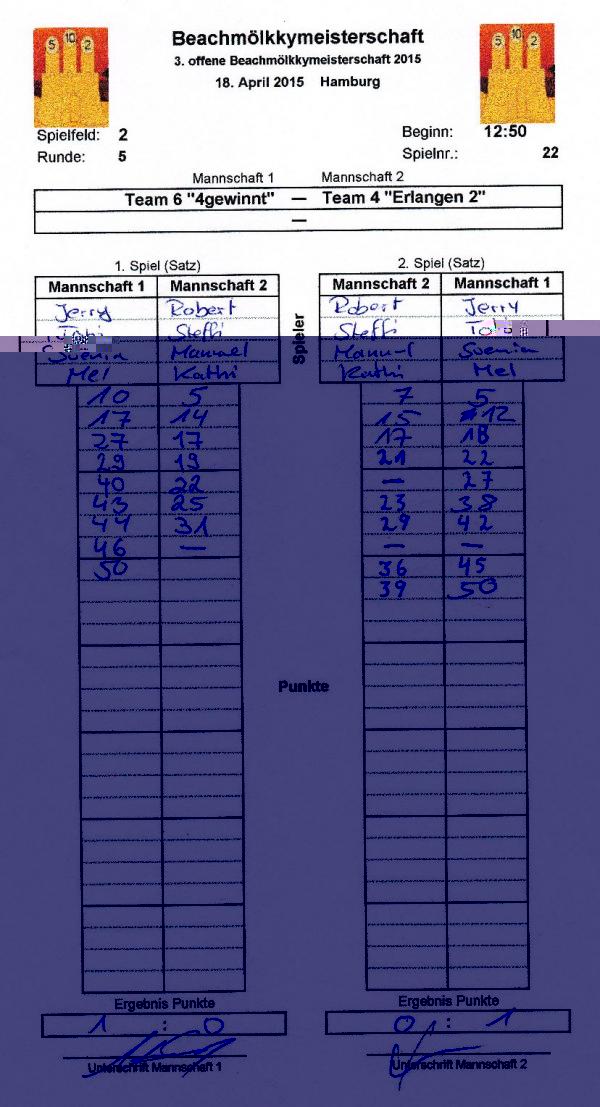 Beachmölkkymeisterschaft
3. offene Beachmölkkymeisterschaft 2015
18. April 2015 Hamburg
5 10 2
5 10 2
Spielfeld: 2
Beginn: 12:50
Runde: 5
Spielnr.: 22
Mannschaft 1 Mannschaft 2
Team 6 "4gewinnt" — Team 4 "Erlangen 2"
—
1. Spiel (Satz)
Mannschaft 1 Mannschaft 2
Jerry Robert
Tobi Steffi
Svenja Manuel
Mel Kathi
10 5
17 14
27 17
29 19
40 22
43 25
44 31
46 —
50
Ergebnis Punkte
1 : 0
Unterschrift Mannschaft 1
Spieler
Punkte
2. Spiel (Satz)
Mannschaft 2 Mannschaft 1
Robert Jerry
Steffi
Manuel Svenja
Kathi Mel
7 5
15 12
17 18
21 22
— 27
23 38
29 42
— —
36 45
39 50
Ergebnis Punkte
0 : 1
Unterschrift Mannschaft 2